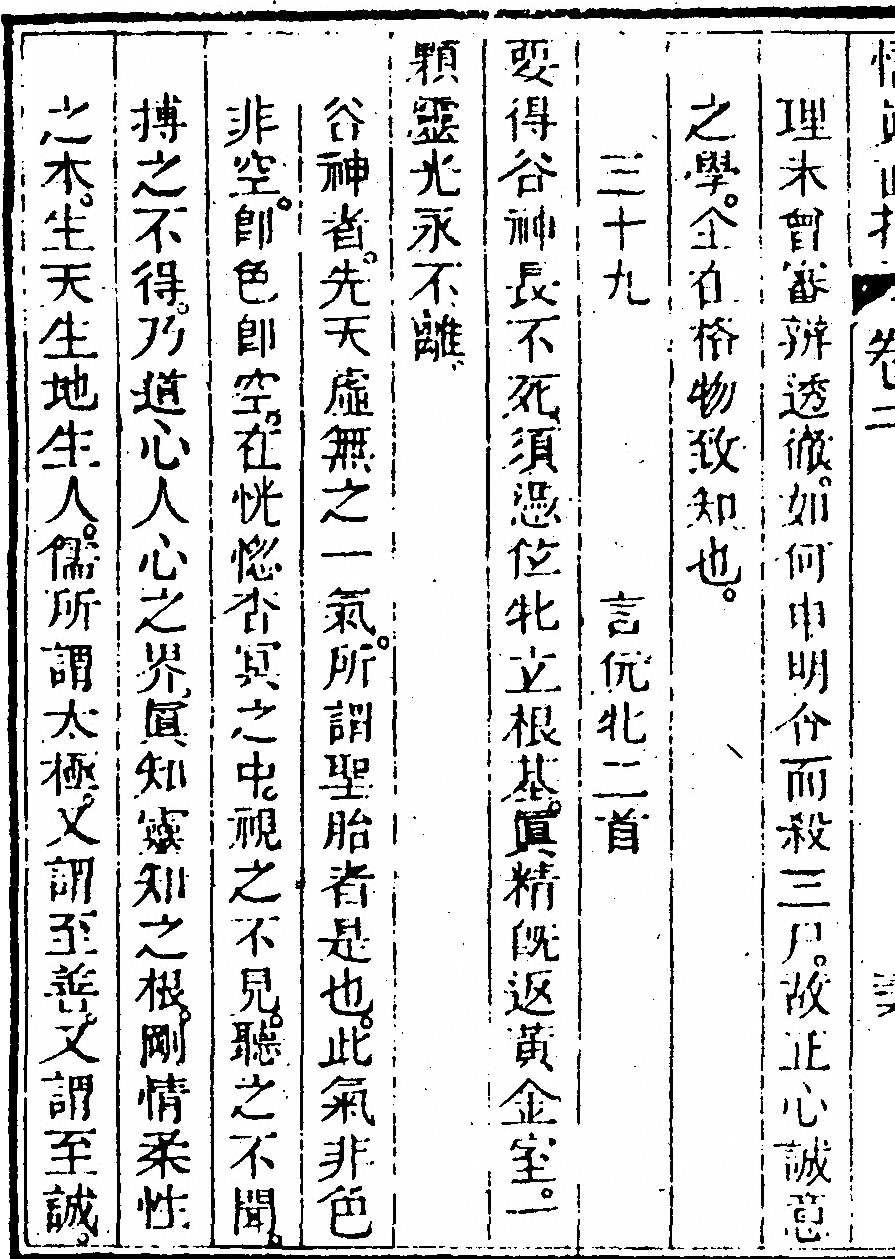 卷二
理未曾審辨透徹。如何申明令而殺三尸。故正心誠意
之學。全在格物致知也。
三十九　言伭牝二首
要得谷神長不死。須憑伭牝立根基。眞精旣返黃金室。一
顆靈光永不離。
谷神者。先天虛無之一氣。所謂聖胎者是也。此氣非色
非空。卽色卽空。在恍惚杳冥之中。視之不見。聽之不聞。
搏之不得。乃道心人心之界。眞知靈知之根。剛情柔性
之本。生天生地生人。儒所謂太極。又謂至善。又謂至誠。